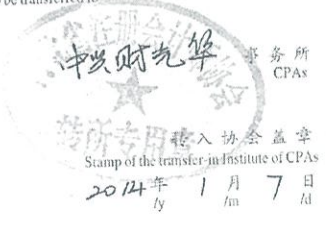 be transferred to
中兴财光华 事务所
CPAs
转所专用章
转入协会盖章
Stamp of the transfer-in Institute of CPAs
2014年 1月 7日
/y /m /d